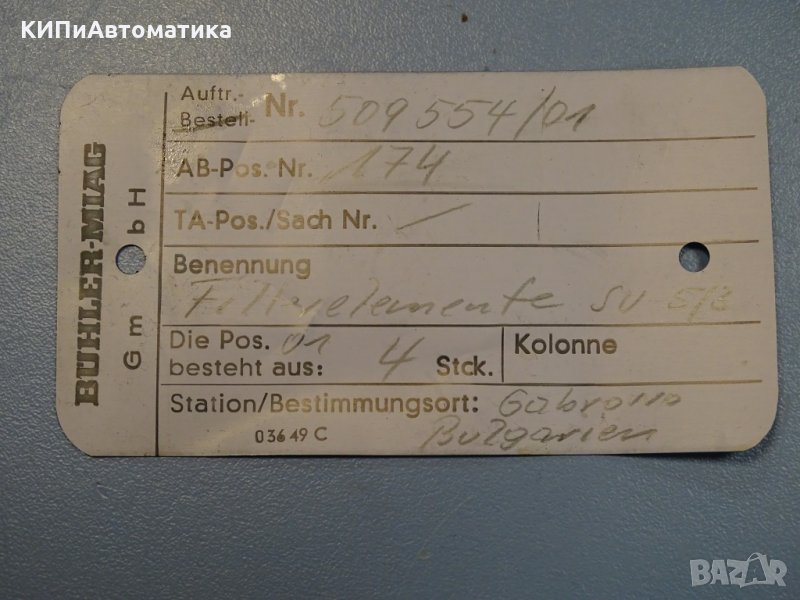 КИПиАвтоматика
BUHLER-MIAG
GmbH
Auftr.-
Bestell- Nr. 509 554/01
AB-Pos. Nr. 174
TA-Pos./Sach Nr. /
Benennung
Filterelemente SU 5/3
Die Pos. 01
besteht aus: 4 Stck.
Kolonne
Station/Bestimmungsort: Gabrowo
Bulgarien
03649 C
BAZAR